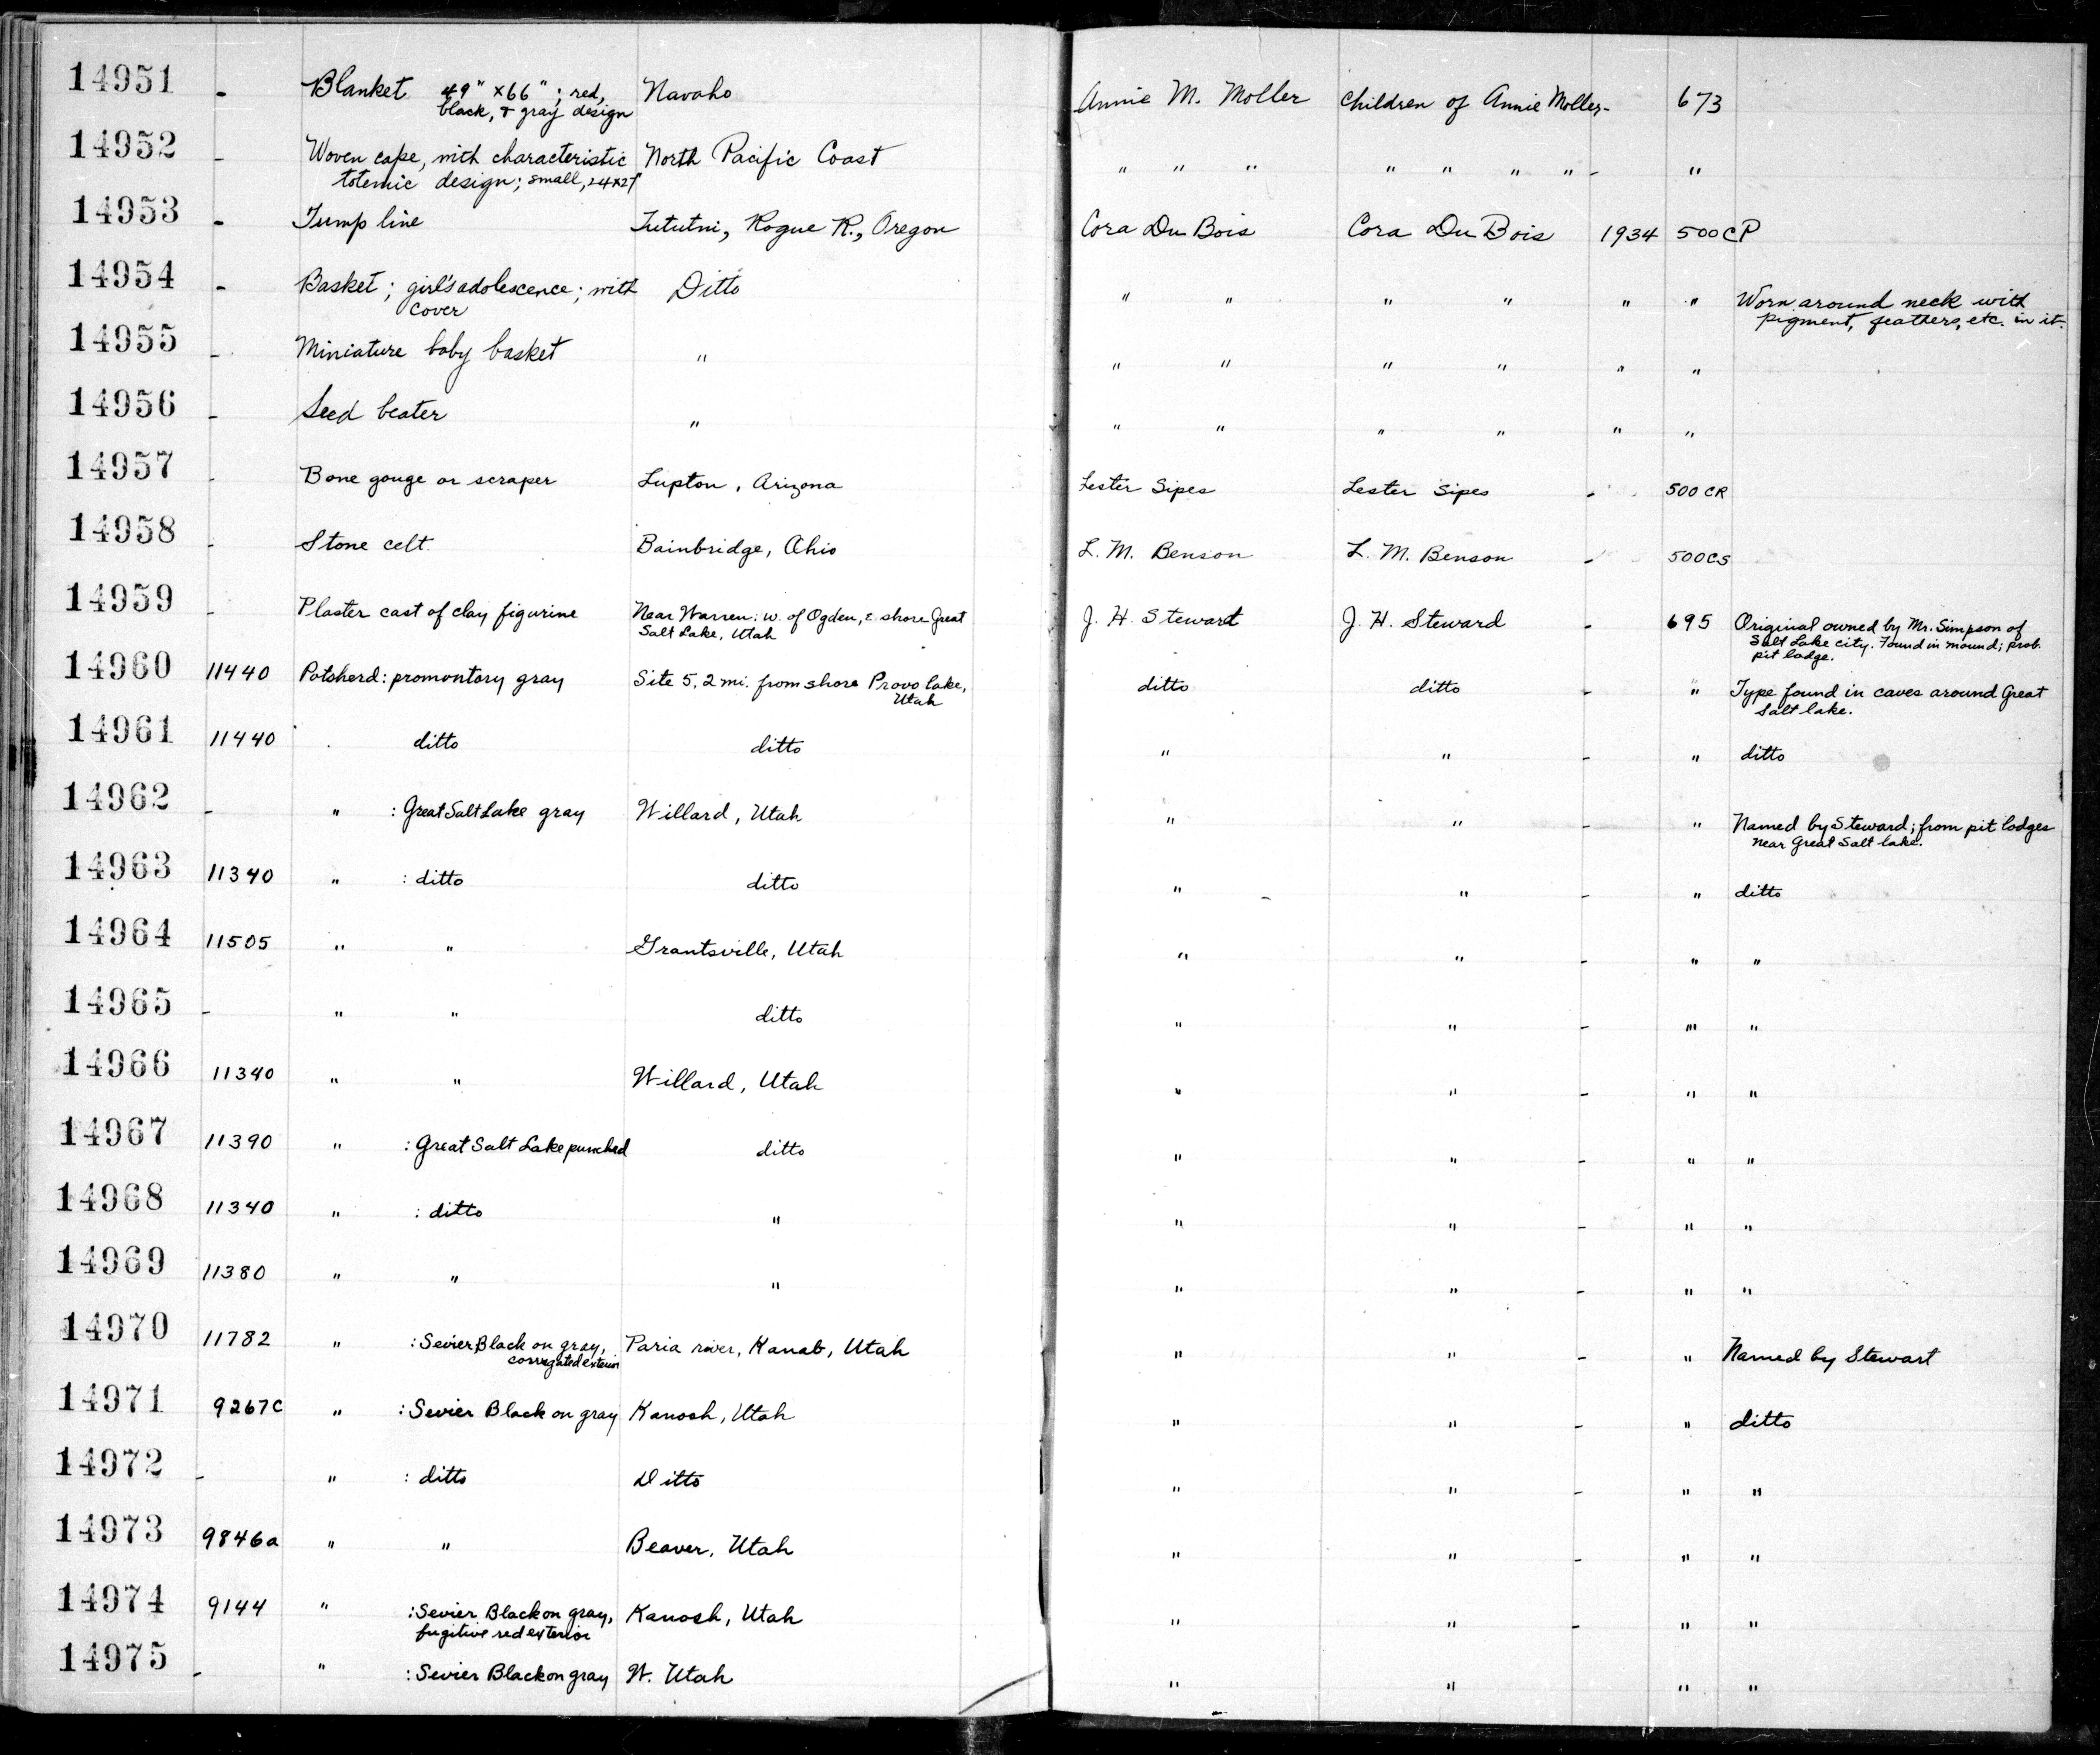 14951 - Blanket 49" x 66"; red, Navaho Annie M. Moller Children of Annie Moller - 673
black, & gray design
14952 - Woven cape, with characteristic North Pacific Coast " " " " " " " - "
totemic design; small, 24x27"
14953 - Tump line Tututni, Rogue R., Oregon Cora Du Bois Cora Du Bois 1934 500CP
14954 - Basket; girl's adolescence; with Ditto " " " " " " Worn around neck with
cover pigment, feathers, etc. in it.
14955 - Miniature baby basket " " " " " " "
14956 - Seed beater " " " " " " "
14957 - Bone gouge or scraper Lupton, Arizona Lester Sipes Lester Sipes - 500 CR
14958 - Stone celt. Bainbridge, Ohio L. M. Benson L. M. Benson - 500CS
14959 - Plaster cast of clay figurine Near Warren; W. of Ogden, E. shore Great J. H. Stewart J. H. Steward - 695 Original owned by Mr. Simpson of
Salt Lake, Utah Salt Lake city. Found in mound; prob.
pit lodge.
14960 11440 Potsherd: promontory gray Site 5, 2 mi. from shore Provo lake, ditto ditto - " Type found in caves around Great
Utah Salt lake.
14961 11440 ditto ditto " " - " ditto
14962 - " : Great Salt Lake gray Willard, Utah " " - " Named by Steward; from pit lodges
near Great Salt lake.
14963 11340 " : ditto ditto " " - " ditto
14964 11505 " " Grantsville, Utah " " - " "
14965 - " " ditto " " - " "
14966 11340 " " Willard, Utah " " - " "
14967 11390 " : Great Salt Lake punched ditto " " - " "
14968 11340 " : ditto " " " - " "
14969 11380 " " " " " - " "
14970 11782 " : Sevier Black on gray, Paria river, Kanab, Utah " " - " Named by Stewart
corrugated exterior
14971 9267C " : Sevier Black on gray Kanosh, Utah " " - " ditto
14972 - " : ditto Ditto " " - " "
14973 9846a " " Beaver, Utah " " - " "
14974 9144 " : Sevier Black on gray, Kanosh, Utah " " - " "
fugitive red exterior
14975 - " : Sevier Black on gray W. Utah " " " "